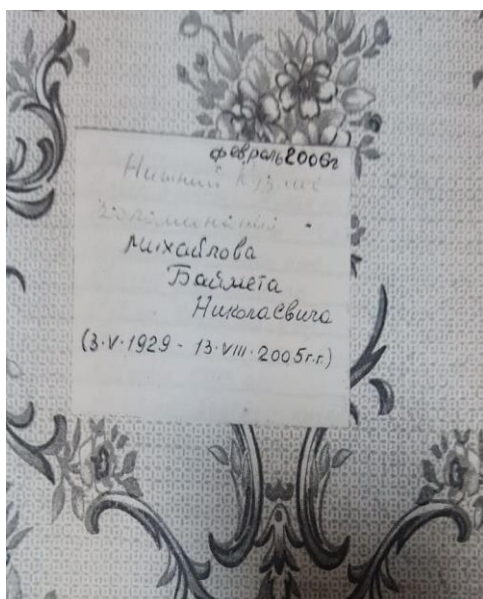 февраль 2006г
Нижний
воспоминания
Михайлова
Баймета
Николаевича
(3.V.1929 - 13.VIII.2005г.г.)